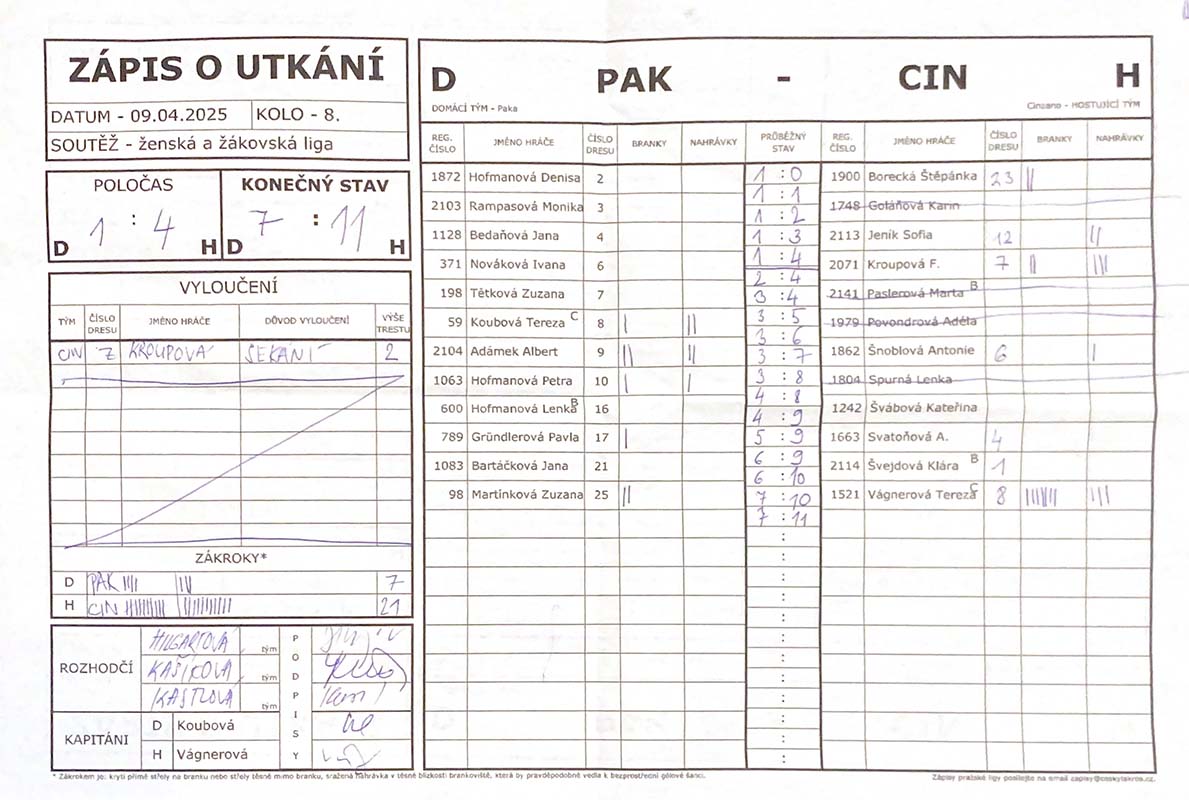 ZÁPIS O UTKÁNÍ
DATUM - 09.04.2025 KOLO - 8.
SOUTĚŽ - ženská a žákovská liga
POLOČAS KONEČNÝ STAV
D 1 : 4 H D 7 : 11 H
VYLOUČENÍ
TÝM ČÍSLO DRESU JMÉNO HRÁČE DŮVOD VYLOUČENÍ VÝŠE TRESTU
CIN 7 KROUPOVÁ SEKÁNÍ 2
ZÁKROKY*
D PAK |||| ||| 7
H CIN 21
ROZHODČÍ
tým
KAŠÍKOVÁ tým
KASTLOVÁ tým
PODPISY
KAPITÁNI
D Koubová
H Vágnerová
D PAK - CIN H
DOMÁCÍ TÝM - Paka Cinzano - HOSTUJÍCÍ TÝM
REG. ČÍSLO JMÉNO HRÁČE ČÍSLO DRESU BRANKY NAHRÁVKY PRŮBĚŽNÝ STAV REG. ČÍSLO JMÉNO HRÁČE ČÍSLO DRESU BRANKY NAHRÁVKY
1872 Hofmanová Denisa 2
2103 Rampasová Monika 3
1128 Bedaňová Jana 4
371 Nováková Ivana 6
198 Tětková Zuzana 7
59 Koubová Tereza C 8 | ||
2104 Adámek Albert 9 || ||
1063 Hofmanová Petra 10 | |
600 Hofmanová Lenka B 16
789 Gründlerová Pavla 17 |
1083 Bartáčková Jana 21
98 Martínková Zuzana 25 ||
1 : 0
1 : 1
1 : 2
1 : 3
1 : 4
2 : 4
3 : 4
3 : 5
3 : 6
3 : 7
3 : 8
4 : 8
4 : 9
5 : 9
6 : 9
6 : 10
7 : 10
7 : 11
1900 Borecká Štěpánka 23 ||
1748 Goláňová Karin
2113 Jeník Sofia 12 ||
2071 Kroupová F. 7 || |||
2141 Paslerová Marta B
1979 Povondrová Adéla
1862 Šnoblová Antonie 6 |
1804 Spurná Lenka
1242 Švábová Kateřina
1663 Svatoňová A. 4
2114 Švejdová Klára B 1
1521 Vágnerová Tereza C 8 ||||||| |||
* Zákrokem je: krytí přímé střely na branku nebo střely těsně mimo branku, sražená nahrávka v těsné blízkosti brankoviště, která by pravděpodobně vedla k bezprostřední gólové šanci.
Zápisy pražské ligy posílejte na email zapisy@ceskylakros.cz.